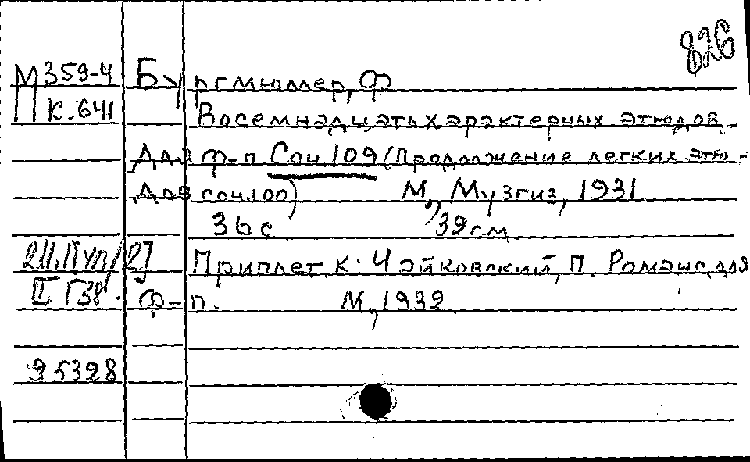 826
М359-4 Бургмюллер, Ф
К.641 Восемнадцать характерных этюдов
Для ф-п. Соч.109 (Продолжение легких этю-
дов соч.100) М., Музгиз, 1931
36 с 39 см
Приплет к: Чайковский, П. Романс для
II Г38. ф-п. М., 1932
95398